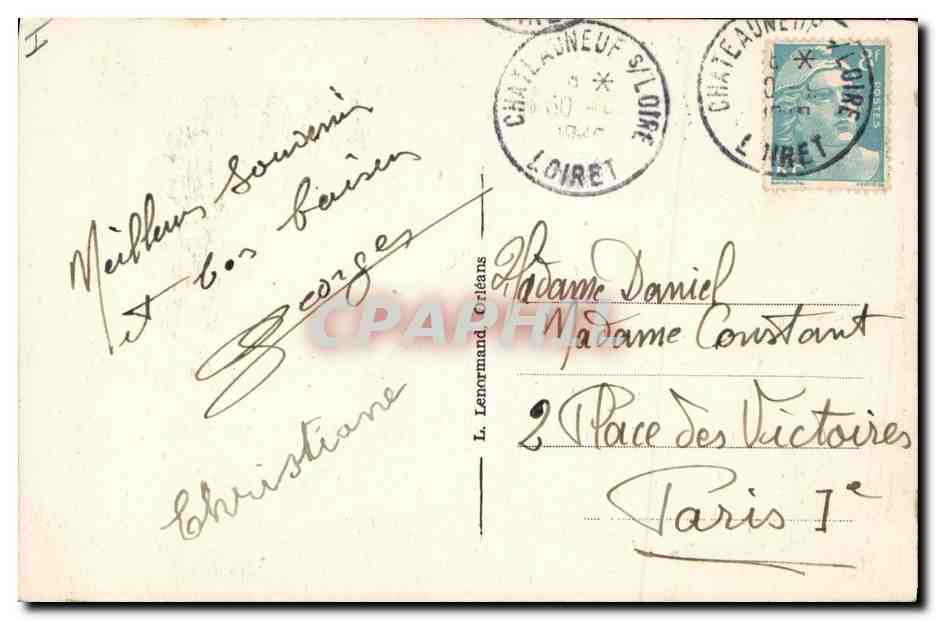 I
CHATEAUNEUF S/LOIRE
LOIRET
CHATEAUNEUF S/LOIRE
LOIRET
POSTES
Meilleurs souvenirs
et bos baisers
Georges
Christiane
L. Lenormand, Orléans
CPAPHIL
Madame Daniel
Madame Constant
2 Place des Victoires
Paris 1e